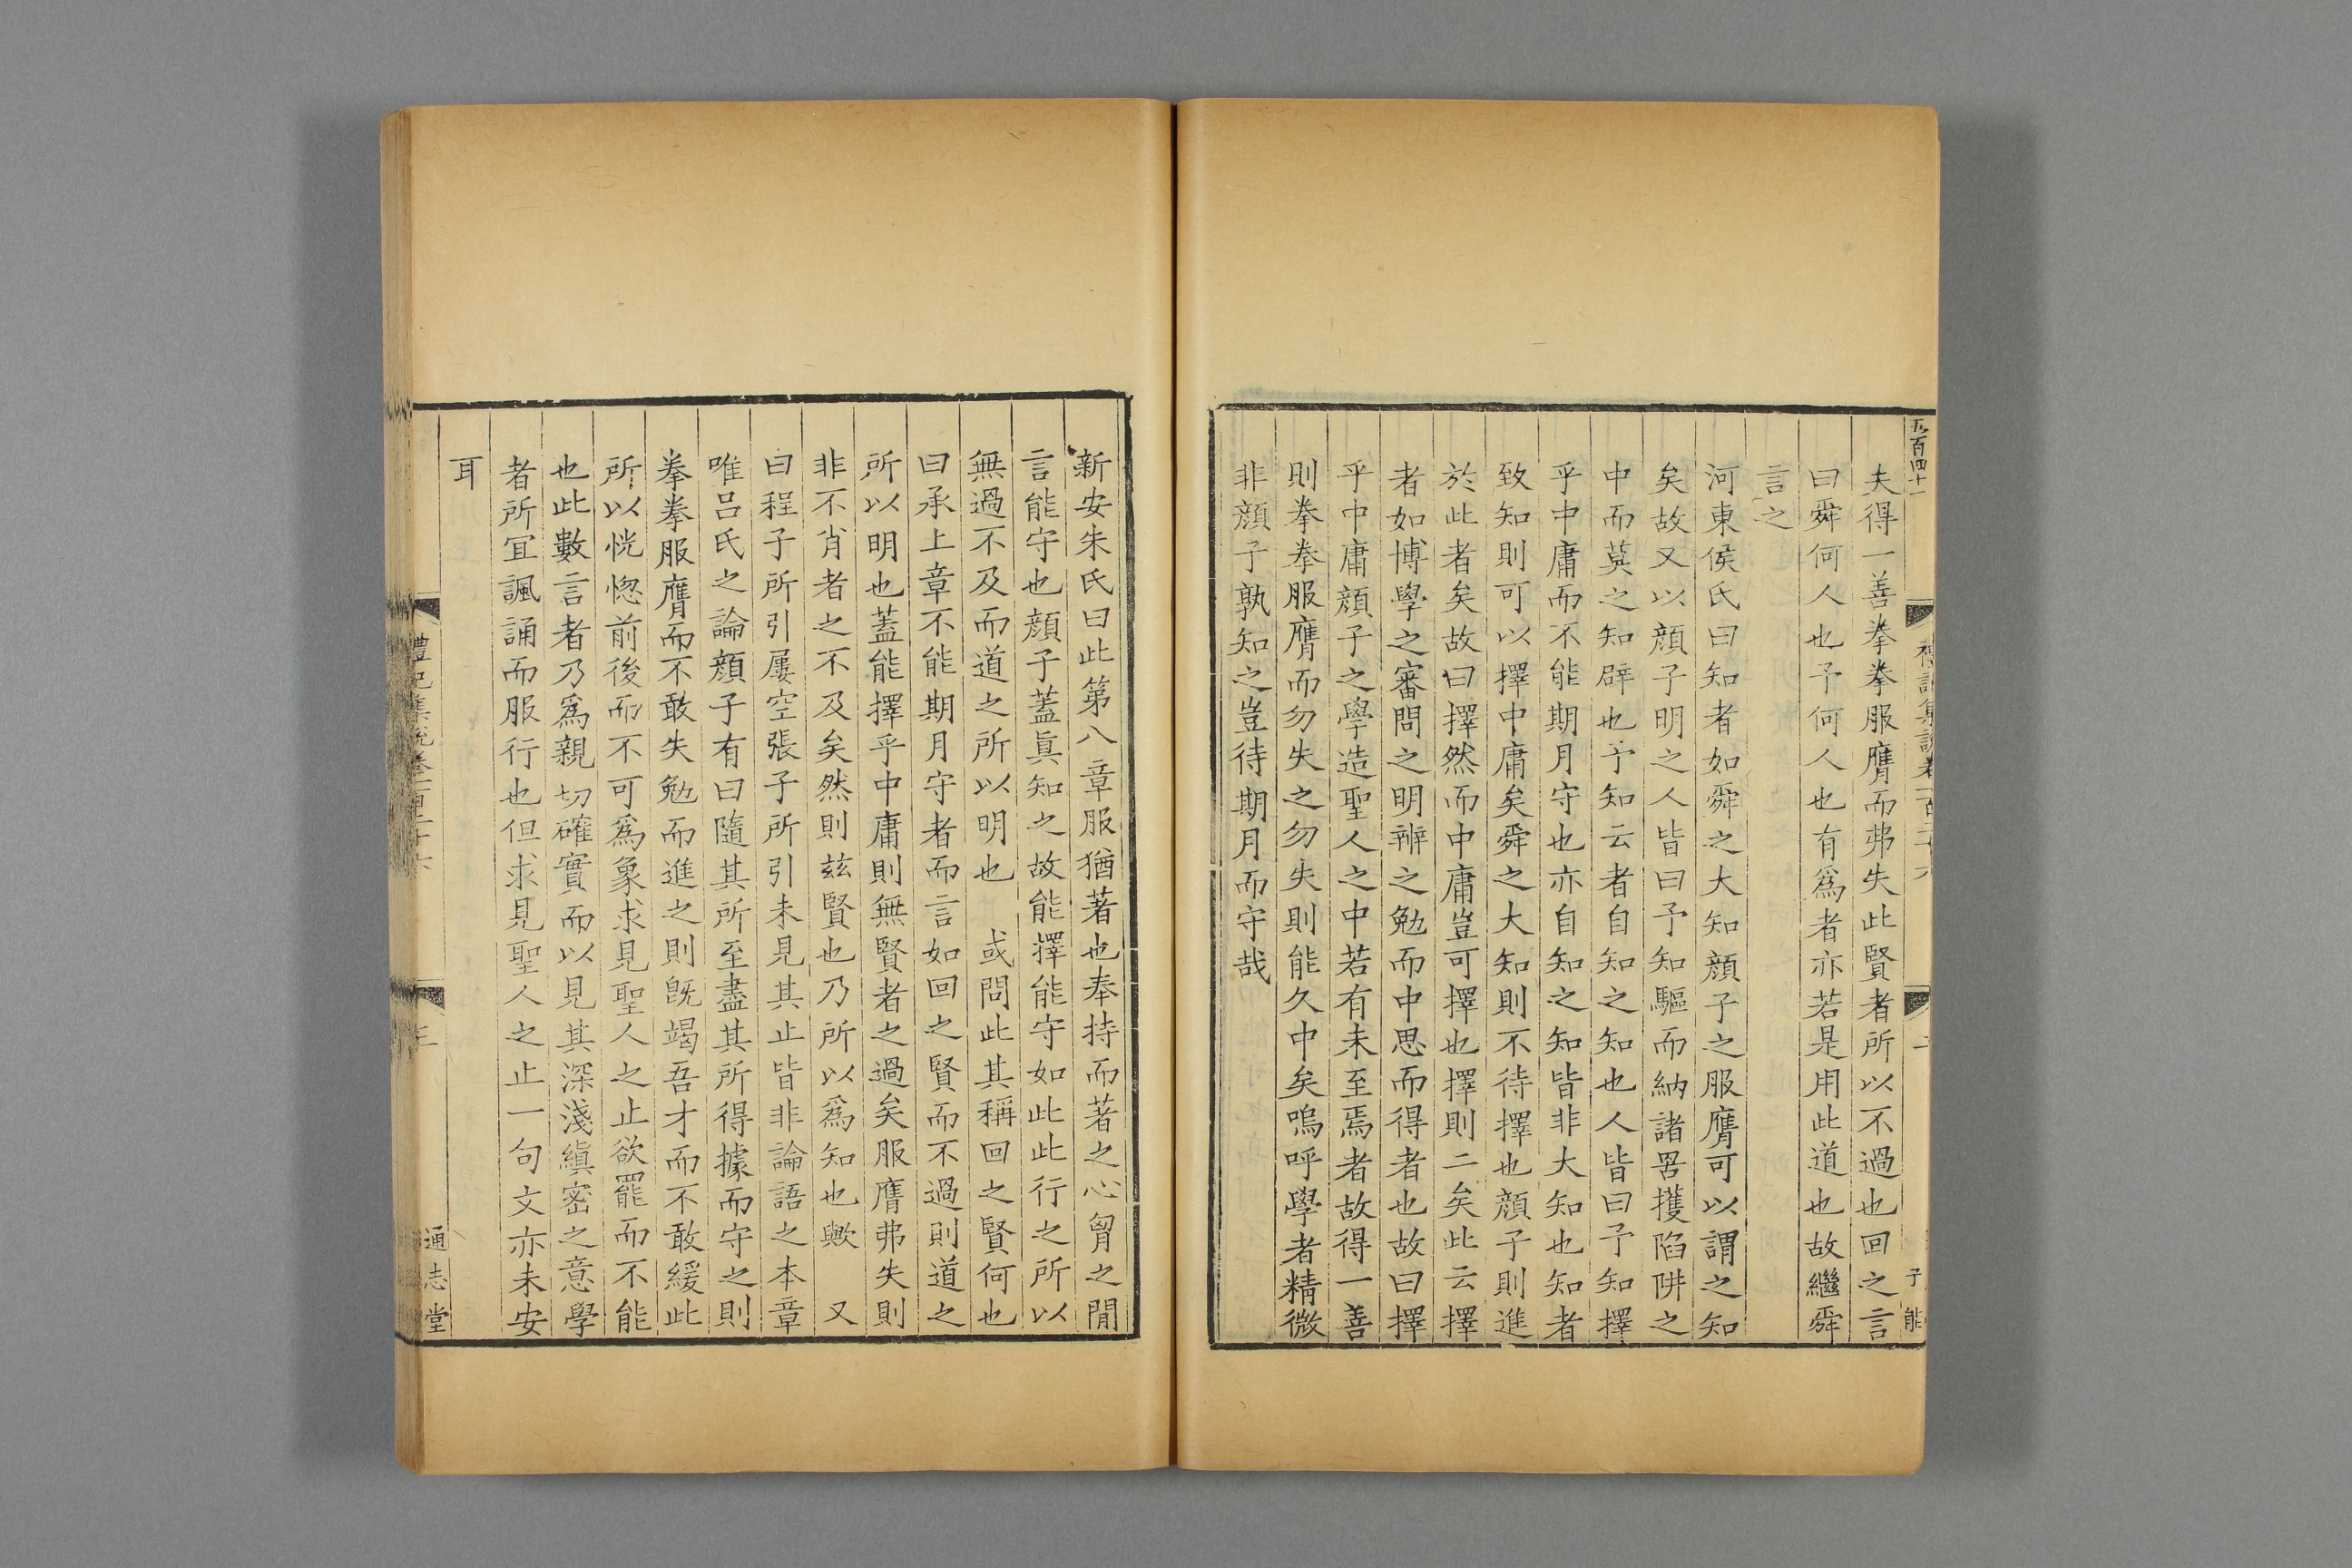 五百四十一
夫得一善拳拳服膺而弗失此賢者所以不過也回之言
曰舜何人也予何人也有爲者亦若是用此道也故繼舜
言之
河東侯氏曰知者如舜之大知顔子之服膺可以謂之知
矣故又以顔子明之人皆曰予知驅而納諸罟擭陷阱之
中而莫之知辟也予知云者自知之知也人皆曰予知擇
乎中庸而不能期月守也亦自知之知皆非大知也知者
致知則可以擇中庸矣舜之大知則不待擇也顔子則進
於此者矣故曰擇然而中庸豈可擇也擇則二矣此云擇
者如博學之審問之明辨之勉而中思而得者也故曰擇
乎中庸顔子之學造聖人之中若有未至焉者故得一善
則拳拳服膺而勿失之勿失則能久中矣嗚呼學者精微
非顔子孰知之豈待期月而守哉
子能
新安朱氏曰此第八章服猶著也奉持而著之心胷之閒
言能守也顔子蓋眞知之故能擇能守如此此行之所以
無過不及而道之所以明也　或問此其稱回之賢何也
曰承上章不能期月守者而言如回之賢而不過則道之
所以明也蓋能擇乎中庸則無賢者之過矣服膺弗失則
非不肖者之不及矣然則兹賢也乃所以爲知也歟　又
曰程子所引屢空張子所引未見其止皆非論語之本章
唯吕氏之論顔子有曰隨其所至盡其所得據而守之則
拳拳服膺而不敢失勉而進之則旣竭吾才而不敢緩此
所以恍惚前後而不可爲象求見聖人之止欲罷而不能
也此數言者乃爲親切確實而以見其深淺縝密之意學
者所宜諷誦而服行也但求見聖人之止一句文亦未安
耳
禮記集說卷一百二十六
三
通志堂